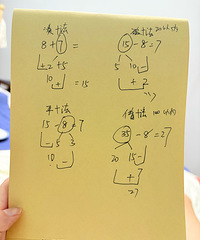 凑十法
8 + 7
+2 +5
10 + = 15
破十法 20以内
15 - 8 = 7
5 10 -
+ 2
平十法
15 - 8 =
- 5 3
10 -
借十法 100以内
35 - 8 = 27
20 15 -
+ 7
27